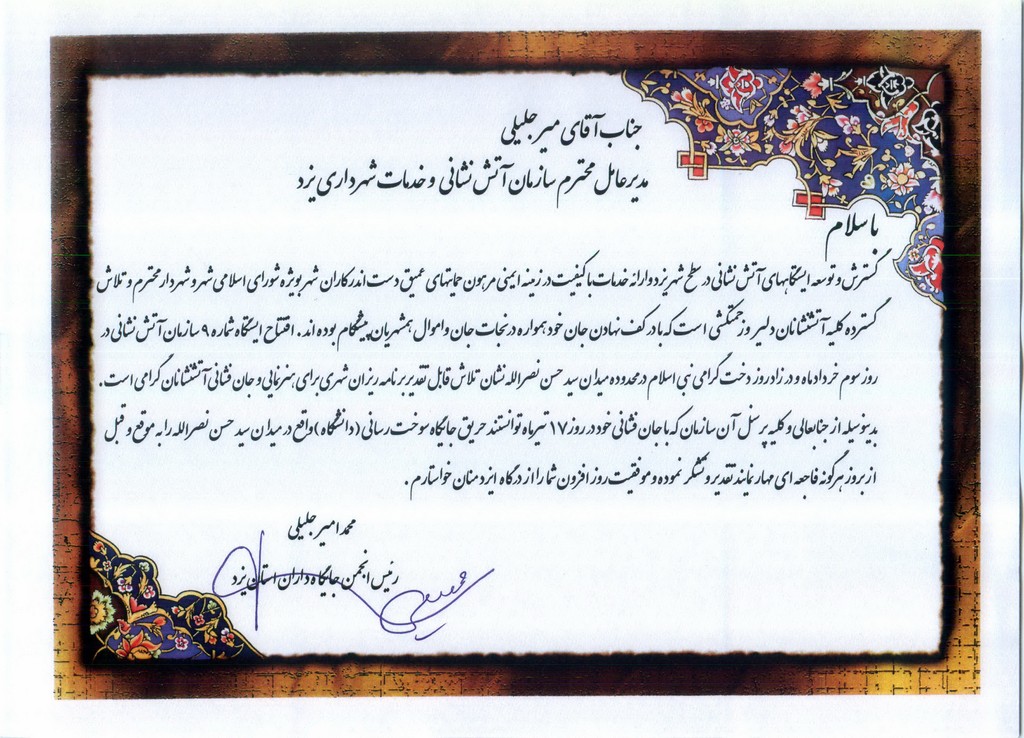 جناب آقای میرجلیلی
مدیرعامل محترم سازمان آتش نشانی و خدمات شهرداری یزد
با سلام
گسترش و توسعه ایستگاههای آتش نشانی در سطح شهر یزد و ارائه خدمات با کیفیت در زمینه ایمنی مرهون حمایتهای عمیق دست اندرکاران شهر بویژه شورای اسلامی شهر و شهردار محترم و تلاش
گسترده کلیه آتشنشانان دلیر و زحمتکشی است که با در کف نهادن جان خود همواره در نجات جان و اموال همشهریان پیشگام بوده اند. افتتاح ایستگاه شماره ۹ سازمان آتش نشانی در
روز سوم خرداد ماه و در زادروز دخت گرامی نبی اسلام در محدوده میدان سید حسن نصرالله نشان تلاش قابل تقدیر برنامه ریزان شهری برای هنرنمایی و جان فشانی آتشنشانان گرامی است.
بدینوسیله از جنابعالی و کلیه پرسنل آن سازمان که با جان فشانی خود در روز ۱۷ تیرماه توانستند حریق جایگاه سوخت رسانی (دانشگاه) واقع در میدان سید حسن نصرالله را به موقع و قبل
از بروز هرگونه فاجعه ای مهار نمایند تقدیر و تشکر نموده و موفقیت روز افزون شما را از درگاه ایزد منان خواستارم.
محمد امیرجلیلی
رئیس انجمن جایگاه داران استان یزد